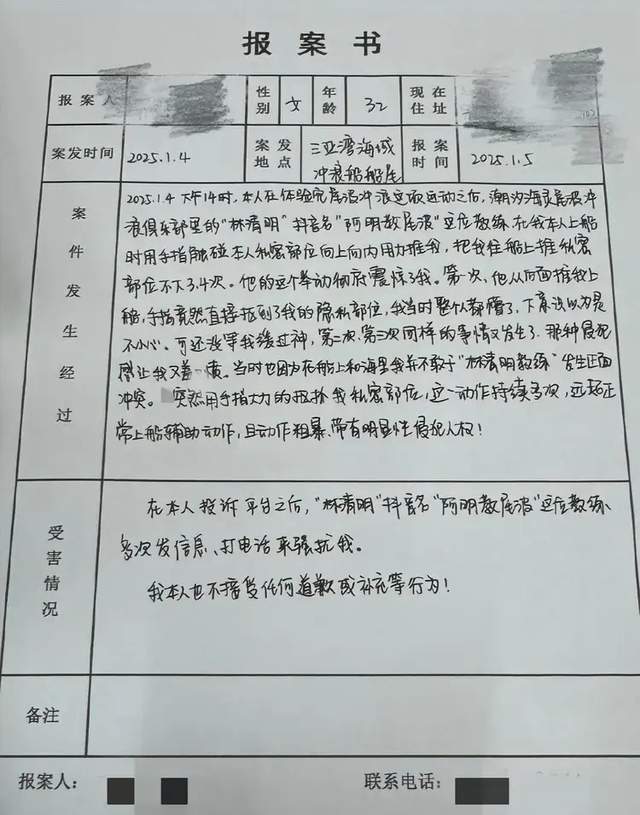 报案书
报案人 性别 女 年龄 32 现在住址
案发时间 2025.1.4 案发地点 三亚湾海域冲浪船船尾 报案时间 2025.1.5
案件发生经过
2025.1.4 下午14时,本人在体验完尾波冲浪这项运动之后,潮汐海灵尾波冲
浪俱乐部里的“林清明”抖音名“阿明教尾波”这位教练,在我本人上船
时用手指触碰本人私密部位向上向内用力推我,把我往船上推私密
部位不下3.4次。他的这个举动彻底震惊了我。第一次,他从后面推我上
船,手指竟然直接抠到了我的隐私部位,我当时整个人都懵了,下意识以为是
不小心。可还没等我缓过神,第二次、第三次同样的事情又发生了.那种侵犯
感让我又羞愤。当时也因为在船上和海里我并不敢于“林清明教练”发生正面
冲突。突然用手指大力的抠我私密部位,这一动作持续多次,远超正
常上船辅助动作,且动作粗暴、带有明显性侵犯人权!
受害情况
在本人投诉平台之后,“林清明”抖音名“阿明教尾波”这位教练、
多次发信息、打电话来骚扰我。
我本人也不接受任何道歉或补充等行为!
备注
报案人: 联系电话: